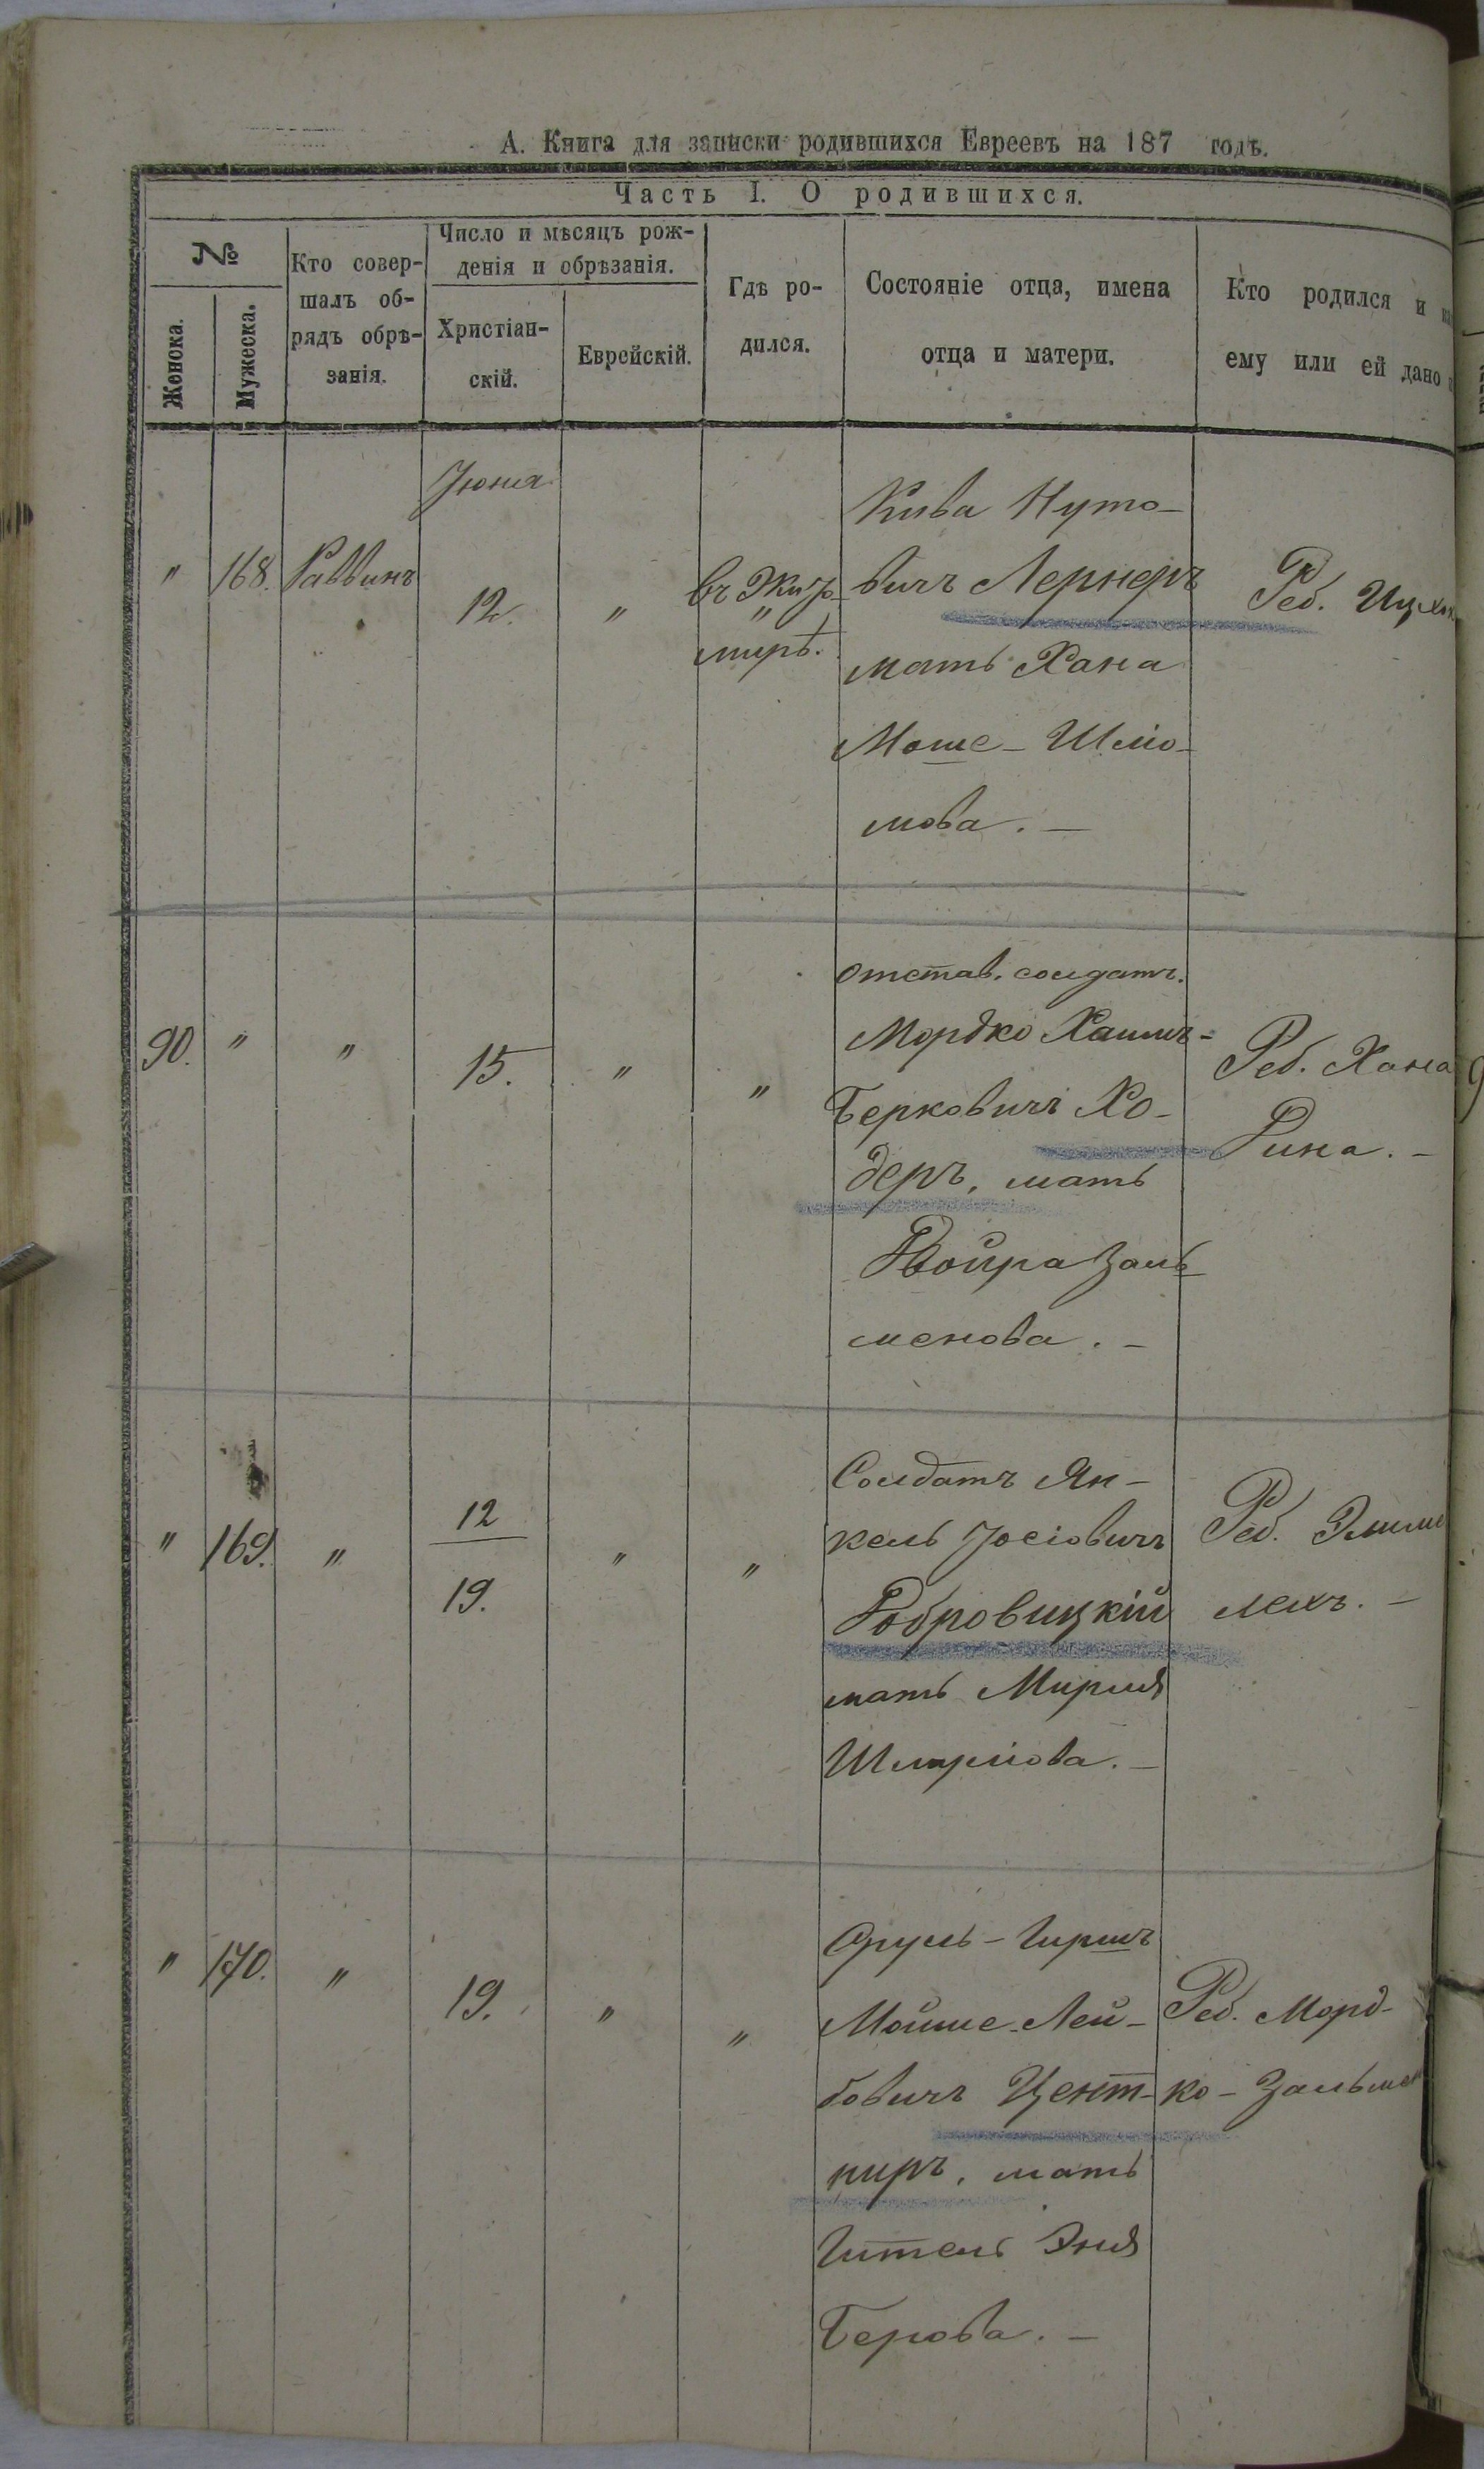 А. Книга для записки родившихся Евреевъ на 187 годъ.
Часть I. О родившихся.
№
Женска.
Мужеска.
Кто совер-
шалъ об-
рядъ обрѣ-
занія.
Число и мѣсяцъ рож-
денія и обрѣзанія.
Христіан-
скій.
Еврейскій.
Гдѣ ро-
дился.
Состояніе отца, имена
отца и матери.
Кто родился и
ему или ей дано
" 168. Раввинъ
Іюня
12.
"
въ Жито
мирѣ.
Кива Нуто-
вичъ Лернеръ
мать Хана
Моше-Шліо-
мова. —
Реб. Ицхо
90. " "
15.
" "
отстав. солдатъ.
Мордко Хаимъ-
Берковичъ Хо-
деръ, мать
Двойра Заль
менова. —
Реб. Хана
Рина. —
" 169. "
12
19.
" "
Солдатъ Ян-
кель Іосіовичъ
Добровицкій
мать Мирля
Шмуліова. —
Реб. Элиме
лехъ. —
" 170. "
19.
" "
Сруль-Гиршъ
Мойше-Лей-
бовичъ Цент-
ниръ, мать
Гитель Эня
Берова. —
Реб. Морд-
ко-Зальмен